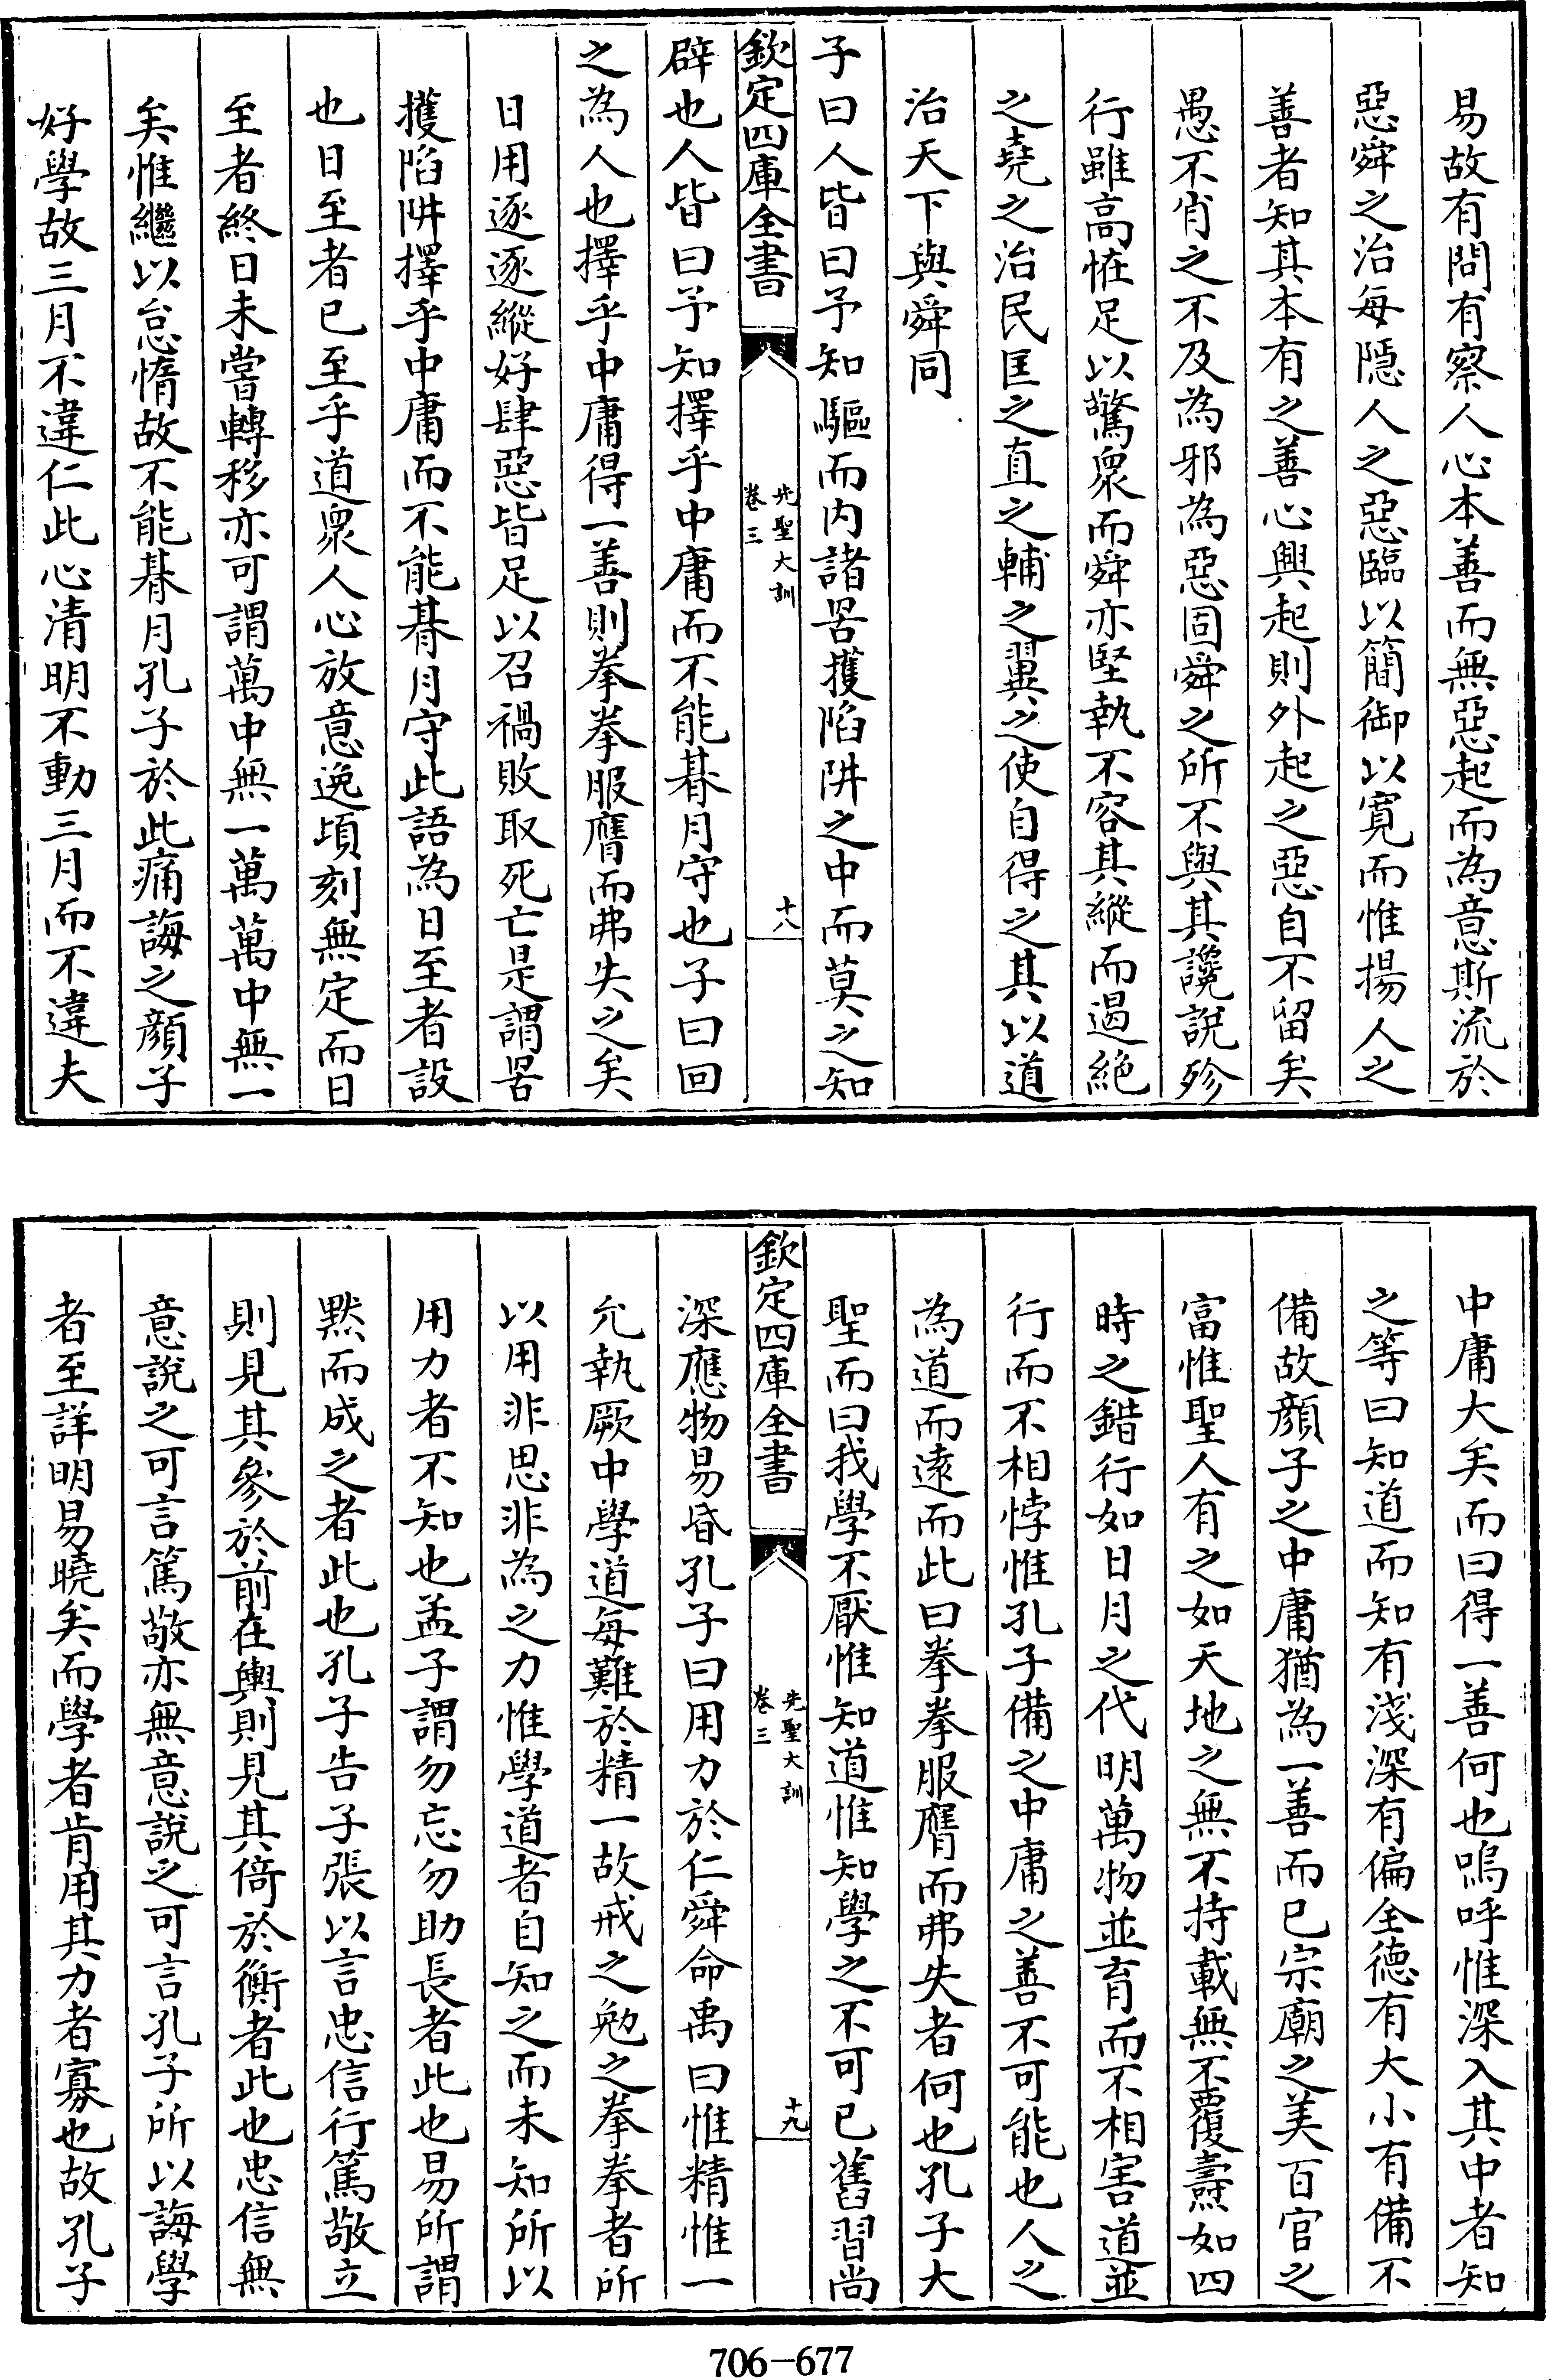 易故有問有察人心本善而無惡起而為意斯流於
惡舜之治每隱人之惡臨以簡御以寛而惟揚人之
善者知其本有之善心興起則外起之惡自不留矣
愚不肖之不及為邪為惡固舜之所不與其讒說殄
行雖高恠足以驚衆而舜亦堅執不容其縱而遏絶
之堯之治民匡之直之輔之翼之使自得之其以道
治天下與舜同
子曰人皆曰予知驅而内諸罟擭陷阱之中而莫之知
欽定四庫全書
先聖大訓
卷三
十八
辟也人皆曰予知擇乎中庸而不能朞月守也子曰回
之為人也擇乎中庸得一善則拳拳服膺而弗失之矣
日用逐逐縱好肆惡皆足以召禍敗取死亡是謂罟
擭陷阱擇乎中庸而不能朞月守此語為日至者設
也日至者已至乎道衆人心放意逸頃刻無定而日
至者終日未嘗轉移亦可謂萬中無一萬萬中無一
矣惟繼以怠惰故不能朞月孔子於此痛誨之顔子
好學故三月不違仁此心清明不動三月而不違夫
中庸大矣而曰得一善何也嗚呼惟深入其中者知
之等曰知道而知有淺深有偏全德有大小有備不
備故顔子之中庸猶為一善而已宗廟之美百官之
富惟聖人有之如天地之無不持載無不覆燾如四
時之錯行如日月之代明萬物並育而不相害道並
行而不相悖惟孔子備之中庸之善不可能也人之
為道而遠而此曰拳拳服膺而弗失者何也孔子大
聖而曰我學不厭惟知道惟知學之不可已舊習尚
欽定四庫全書
先聖大訓
卷三
十九
深應物易昏孔子曰用力於仁舜命禹曰惟精惟一
允執厥中學道每難於精一故戒之勉之拳拳者所
以用非思非為之力惟學道者自知之而未知所以
用力者不知也孟子謂勿忘勿助長者此也易所謂
黙而成之者此也孔子告子張以言忠信行篤敬立
則見其參於前在輿則見其倚於衡者此也忠信無
意說之可言篤敬亦無意說之可言孔子所以誨學
者至詳明易曉矣而學者肯用其力者寡也故孔子
706-677